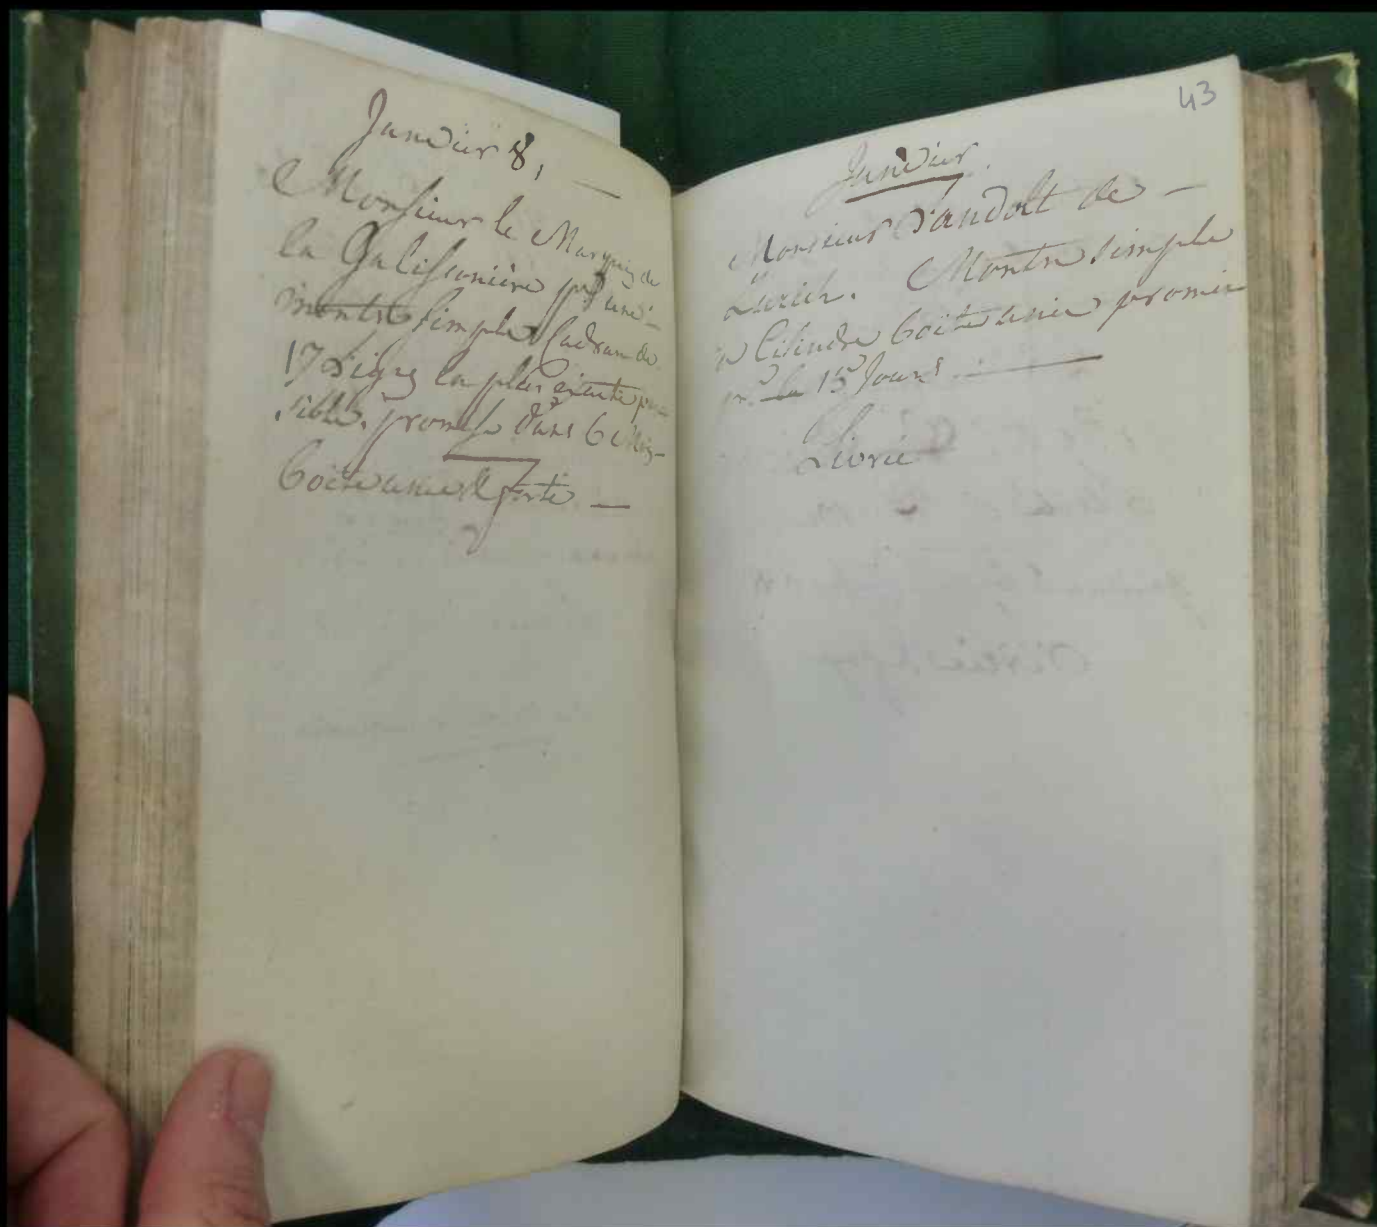 Janvier 8,
Monsieur le Marquis de
la Galissonière pr une
montre simple Cadran de
17 Lignes la plus exacte pos
sible. promise dans 6 Mois
boite unie & forte
43
Janvier
Monsieur Vandolt de
Zurich. Montre simple
à Cilindre boite unie promise
pr le 15 Jours
Livrée